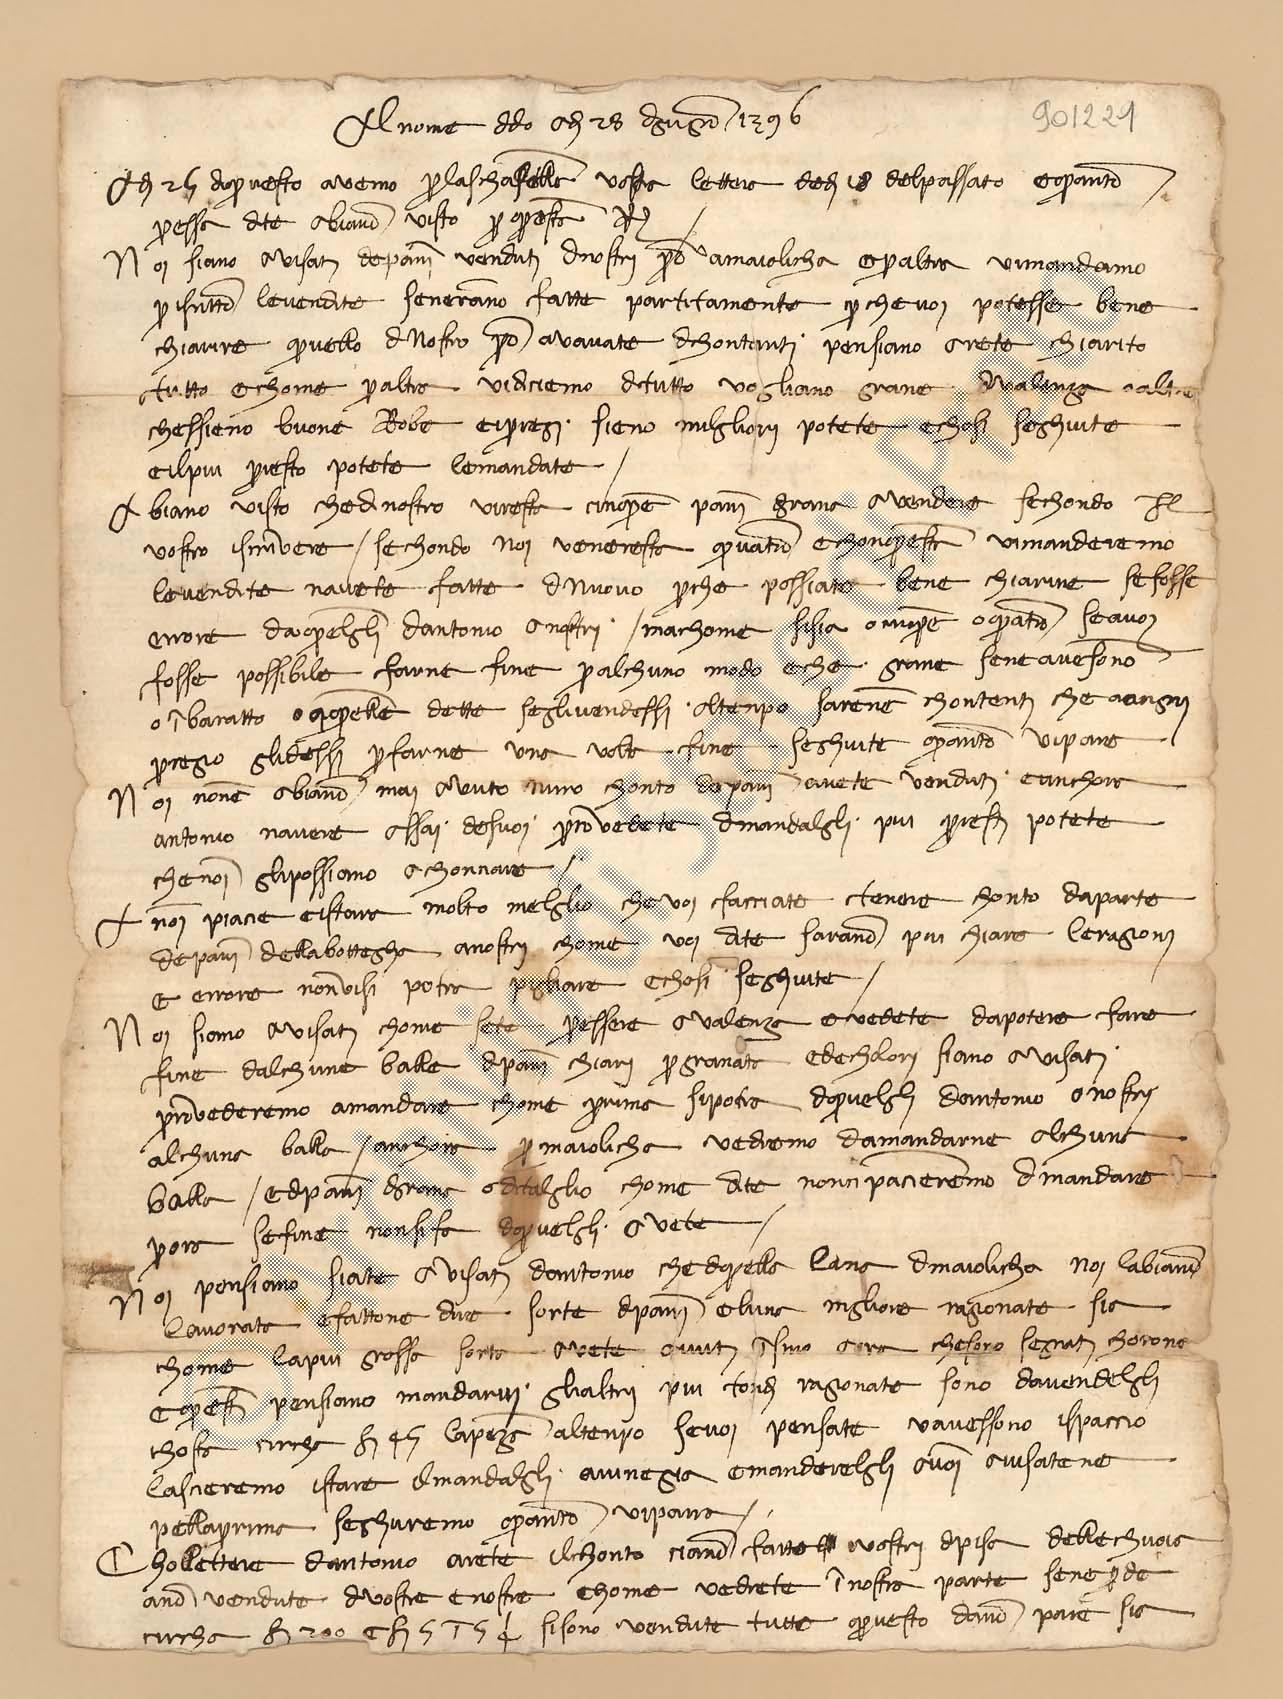 Al nome di Dio Adì 28 di giugno 1396
901221
Adì 25 di questo avemo per la schafetta vostra lettera dedì 18 del passato e quanto
per essa dite abiamo visto per questa R°
Noi siamo avisati de panni venduti di nostri per a Maiolicha e per altra vi mandamo
per iscritto le vendite seneranno fatte partitamente perche voi potesse bene
chiarire quello di nostro avavate di chontanti pensiamo arete chiarito
tutto e chome per altra vi diciemo di tutto vogliamo grane di Valenza o altre
che sieno buone Robe e i pregi sieno migliori potete e chosì seghuite
e il piu presto potete le mandate
Abiano visto che di nostro vi resta cinque panni grana a vendere sechondo il
vostro iscrivere sechondo noi ve ne resta quatro e chon questa vi manderemo
le vendite n'avete fatte di nuovo perche possiate bene chiarire se fosse
errore da quelgli d'Antonio a nostri ma chome si sia o cinque o quatro se a voi
fosse possibile farne fine per alchuno modo e che grane se ne avessono
o in baratto o quelle dette se gli vendessi a tenpo saremo chontenti che a ongni
pregio gli dessi per farne una volta fine seghuite quanto vi pare
Noi none abiamo mai auto niuno chonto de panni avete venduti e anchora
Antonio n'avere assai de suoi provedete di mandalgli piu presto potete
che noi gli possiamo achonciare
A noi piacie e istara molto melglio che voi facciate tenere chonto da parte
de panni della bottegha a nostri chome voi dite saranno piu chiare le ragioni
e errore nonn vi si potra pigliare e chosì seghuite
Noi siamo avisati chome sete per essere a Valenza e vedete da potere fare
fine d'alchune balle di panni chiari per Granata e de cholori siamo avisati
provederemo a mandare chome prima si potra di quelgli d'Antonio a nostri
alchuna balla anchora per Maiolicha vedremo da mandarne alchuna
balla e di panni di grana a ditalglio chome dite non ci pacieremo di mandare
per ora se fine non si fa di quelgli avete
Noi pensiamo siate avisati d'Antonio che di quella lana di Maiolicha noi l'abiamo
lavorata e fattone due sorte di panni e l'una migliore ragionate sia
chome la piu grossa sorta avete auti insino a ora che soro segnati chorona
e questi pensiamo mandarvi gli altri piu tondi ragionate sono da vendelgli
chosta circha 45 la peza al tenpo se voi pensate v'avessono ispaccio
lascieremo istare il mandalgli a Vinegia e manderelgli a voi avisatene
pella prima seghuremo quanto vi para
Cho lettere d'Antonio arete il chonto ci anno fatto i vostri di Pisa delle chuoia
anno vendute di vostre e nostre e chome vedrete in nostra parte se ne perde
circha 200 e 5 si sono vendute tutte questo danno pare sia